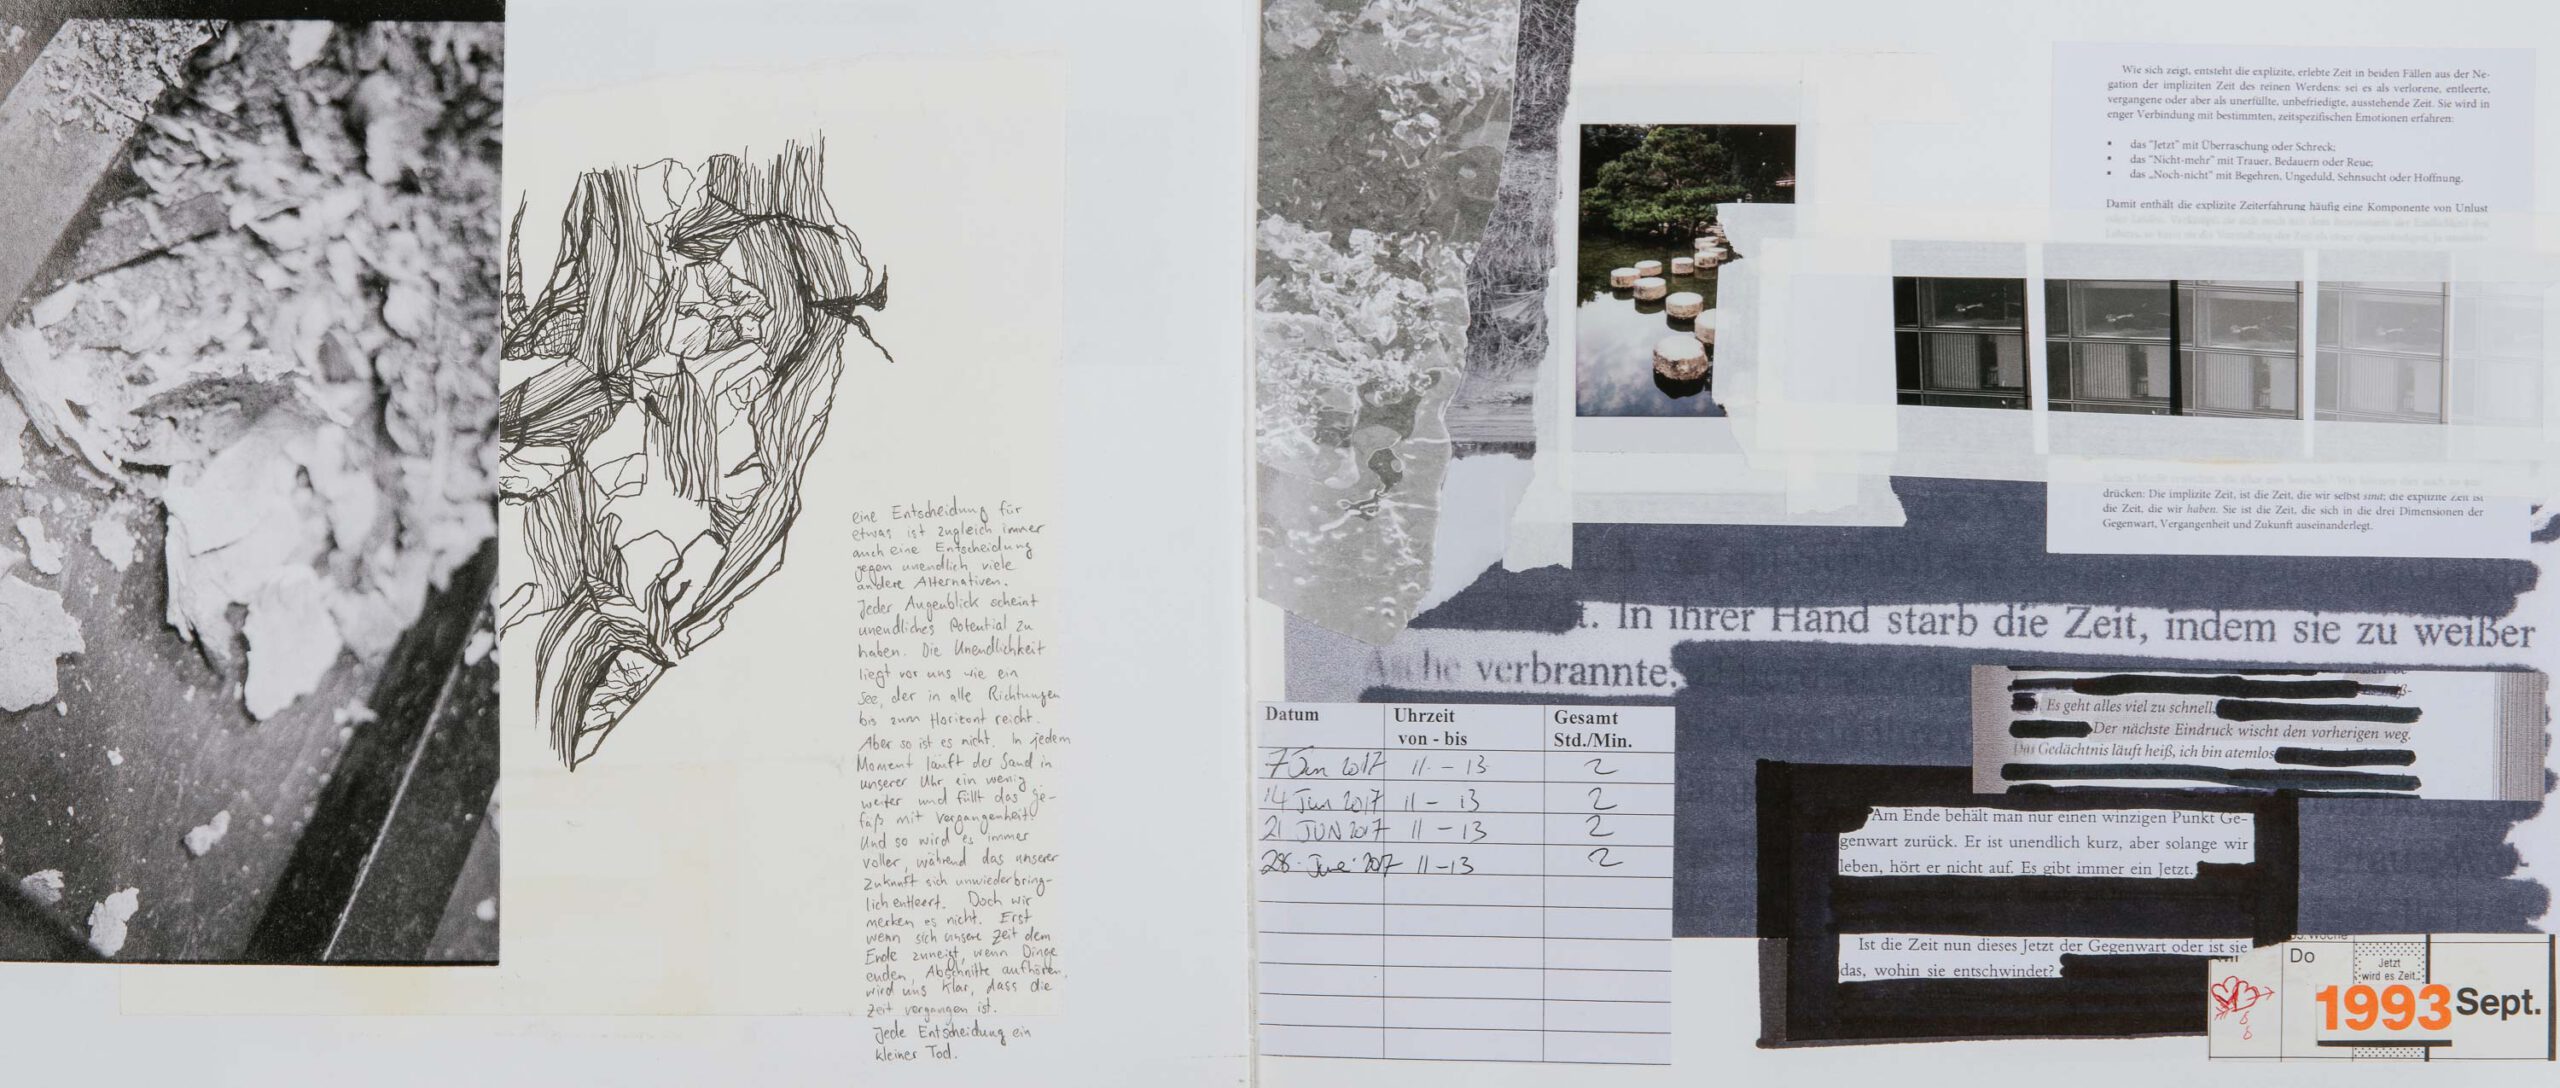 eine Entscheidung für
etwas ist zugleich immer
auch eine Entscheidung
gegen unendlich viele
andere Alternativen.
Jeder Augenblick scheint
unendliches Potential zu
haben. Die Unendlichkeit
liegt vor uns wie ein
See, der in alle Richtungen
bis zum Horizont reicht.
Aber so ist es nicht. In jedem
Moment läuft der Sand in
unserer Uhr ein wenig
weiter und füllt das Ge-
fäß mit Vergangenheit.
Und so wird es immer
voller, während das unserer
Zukunft sich unwiederbring-
lich entleert. Doch wir
merken es nicht. Erst
wenn sich unsere Zeit dem
Ende zuneigt, wenn Dinge
enden, Abschnitte aufhören,
wird uns klar, dass die
Zeit vergangen ist.
Jede Entscheidung ein
kleiner Tod.
Wie sich zeigt, entsteht die explizite, erlebte Zeit in beiden Fällen aus der Ne-
gation der impliziten Zeit des reinen Werdens: sei es als verlorene, entleerte,
vergangene oder aber als unerfüllte, unbefriedigte, ausstehende Zeit. Sie wird in
enger Verbindung mit bestimmten, zeitspezifischen Emotionen erfahren:
• das "Jetzt" mit Überraschung oder Schreck;
• das "Nicht-mehr" mit Trauer, Bedauern oder Reue;
• das „Noch-nicht" mit Begehren, Ungeduld, Sehnsucht oder Hoffnung.
Damit enthält die explizite Zeiterfahrung häufig eine Komponente von Unlust
drücken: Die implizite Zeit, ist die Zeit, die wir selbst sind; die explizite Zeit ist
die Zeit, die wir haben. Sie ist die Zeit, die sich in die drei Dimensionen der
Gegenwart, Vergangenheit und Zukunft auseinanderlegt.
t. In ihrer Hand starb die Zeit, indem sie zu weißer
Asche verbrannte.
Es geht alles viel zu schnell.
Der nächste Eindruck wischt den vorherigen weg.
Das Gedächtnis läuft heiß, ich bin atemlos
Datum Uhrzeit von - bis Gesamt Std./Min.
7 Jun 2017 11 - 13 2
14 Jun 2017 11 - 13 2
21 JUN 2017 11 - 13 2
28. June 2017 11 - 13 2
Am Ende behält man nur einen winzigen Punkt Ge-
genwart zurück. Er ist unendlich kurz, aber solange wir
leben, hört er nicht auf. Es gibt immer ein Jetzt.
Ist die Zeit nun dieses Jetzt der Gegenwart oder ist sie
das, wohin sie entschwindet?
Do
Jetzt
wird es Zeit.
1993 Sept.